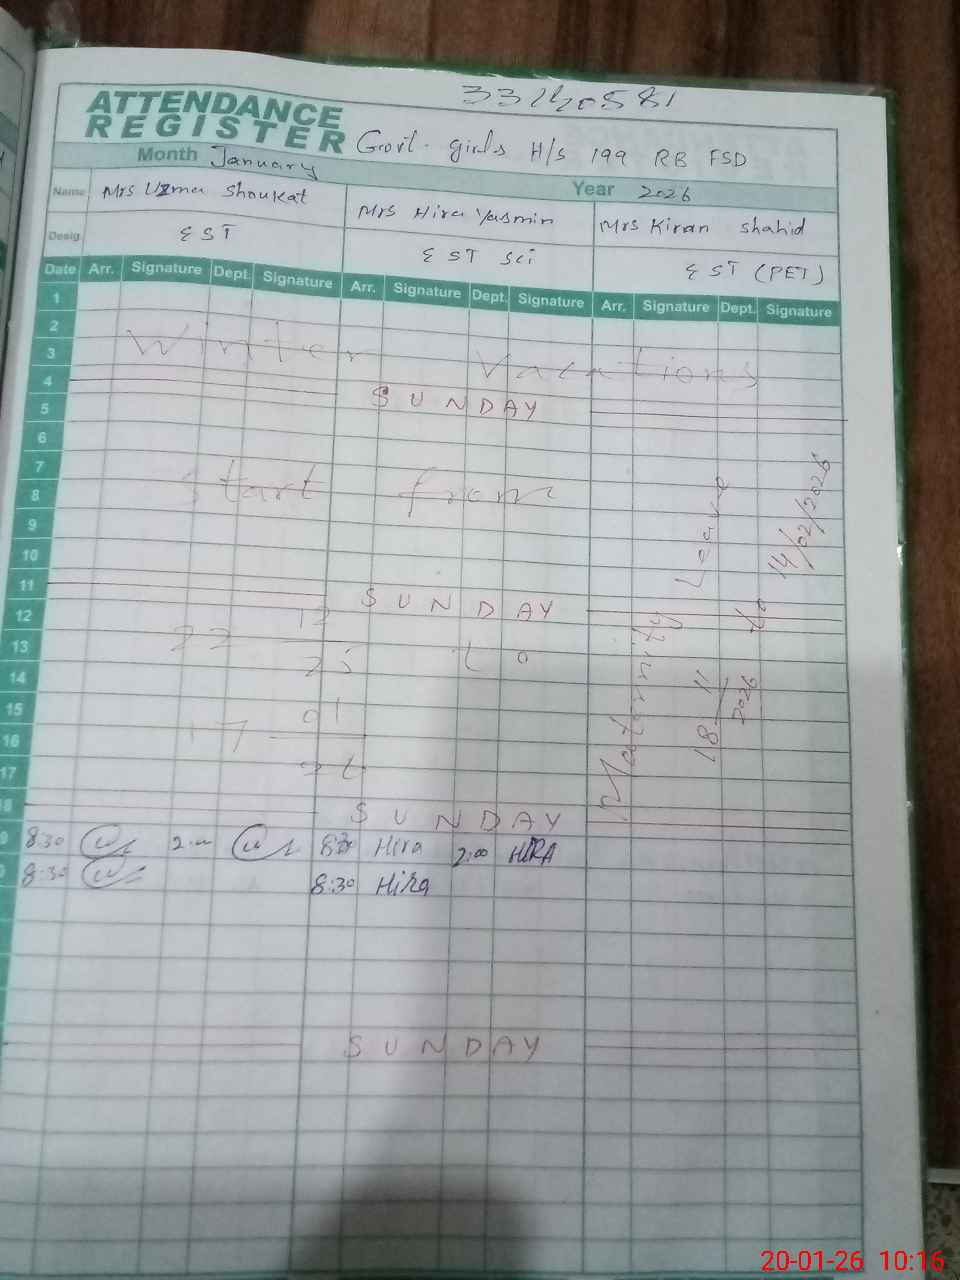 33240581
ATTENDANCE
REGISTER Govt. girls H/s 199 RB FSD
Month January Year 2026
Name Mrs Uzma Shoukat Mrs Hira Yasmin Mrs Kiran Shahid
Desig. EST EST Sci EST (PET)
Date Arr. Signature Dept. Signature Arr. Signature Dept. Signature Arr. Signature Dept. Signature
1
2
3 Winter Vacations
4
5 SUNDAY
6
7
8 Start from
9
10
11
12 SUNDAY
13 22 12 to
14 25
15
16 17 01
17 26
18 SUNDAY
Maternity Leave
18 11 2026 to 14/02/2026
9 8:30 2:00 8:30 Hira 2:00 HIRA
8:30 8:30 Hira
SUNDAY
20-01-26 10:16